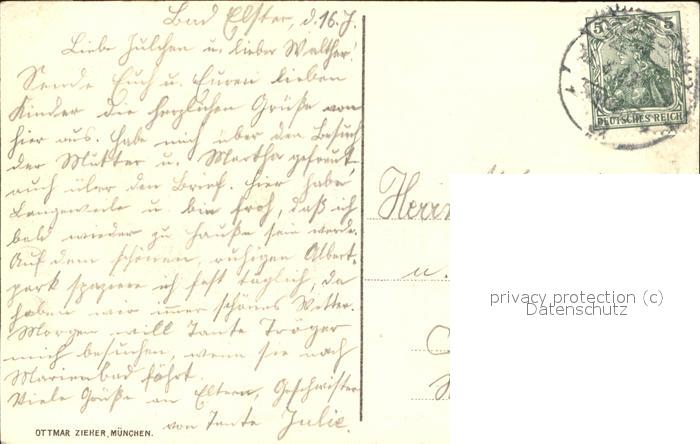 Bad Elster, d. 16. J.
Liebe Julchen u. lieber Walther!
Sende Euch u. Euren lieben
Kinder die herzlichen Grüße von
hier aus. Habe mich über den Besuch
der Mutter u. Martha gefreut
auch über den Brief. Hier habe
Langeweile u. bin froh, daß ich
bald wieder zu Hauße sein werde.
Auf dem schönen, ruhigen Albert-
park spaziere ich fast täglich, da
haben wir immer schönes Wetter.
Morgen will Tante Tröger
mich besuchen, wenn sie nach
Marienbad fährt.
Viele Grüße an Eltern, Geschwister
von Tante Julie.
OTTMAR ZIEHER, MÜNCHEN.
5 5
DEUTSCHES REICH
Herrn
u.
privacy protection (c)
Datenschutz